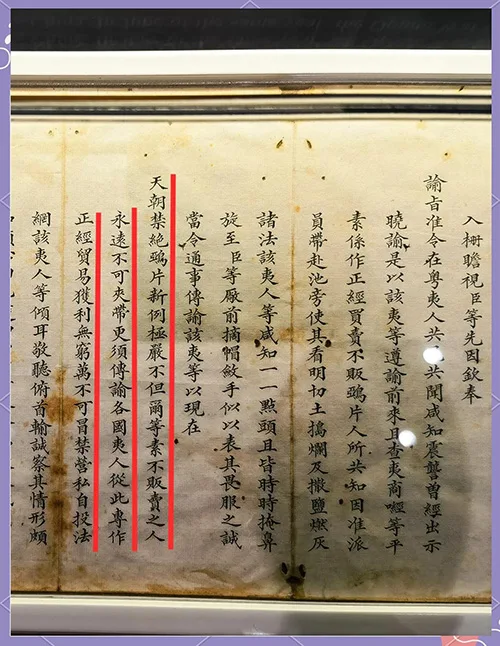 入柵瞻視臣等先因欽奉
諭旨准令在粵夷人共共聞咸知震讋曾經出示
曉諭是以該夷等遵諭前來且查夷商等平
素係作正經買賣不販鴉片人所共知因准派
員帶赴池旁使其看明切土搗爛及撒鹽燃灰
諸法該夷人等咸知一一點頭且皆時時掩鼻
旋至臣等廠前摘帽斂手似以表其畏服之誠
當令通事傳諭該夷等以現在
天朝禁絕鴉片新例極嚴不但爾等素不販賣之人
永遠不可夾帶更須傳諭各國夷人從此專作
正經貿易獲利無窮萬不可冒禁營私自投法
網該夷人等傾耳敬聽俯首輸誠察其情形頗